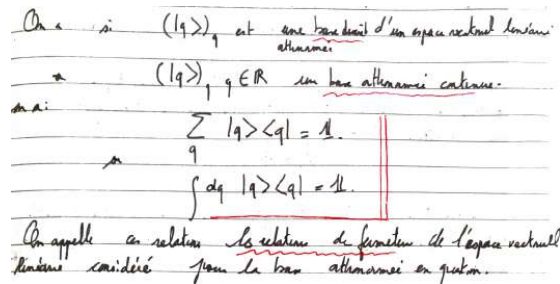 On a si (|q>)_q est une base discrète d'un espace vectoriel linéaire
orthonormée
ou (|q>)_q, q ∈ ℝ une base orthonormée continue.
on a:
∑_q |q><q| = 𝟙.
ou
∫ dq |q><q| = 𝟙.
On appelle ces relations les relations de fermeture de l'espace vectoriel
linéaire considéré pour la base orthonormée en question.